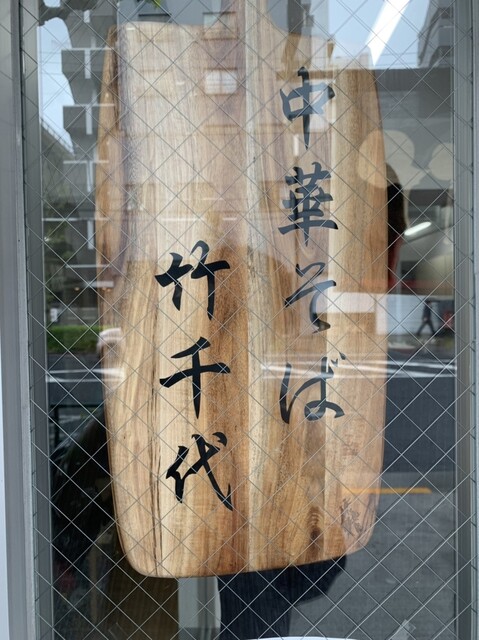 中華そば
竹千代